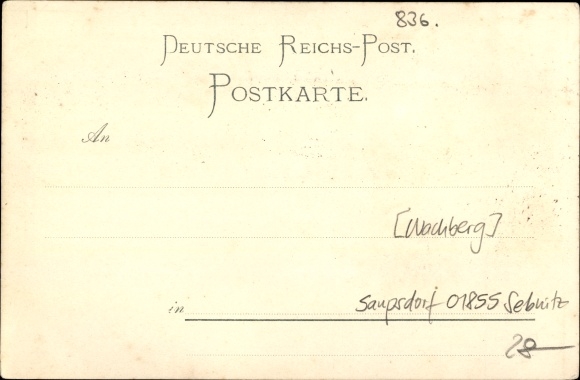 836.
DEUTSCHE REICHS-POST.
POSTKARTE.
An
[Wachberg]
in Saupsdorf 01855 Sebnitz
28